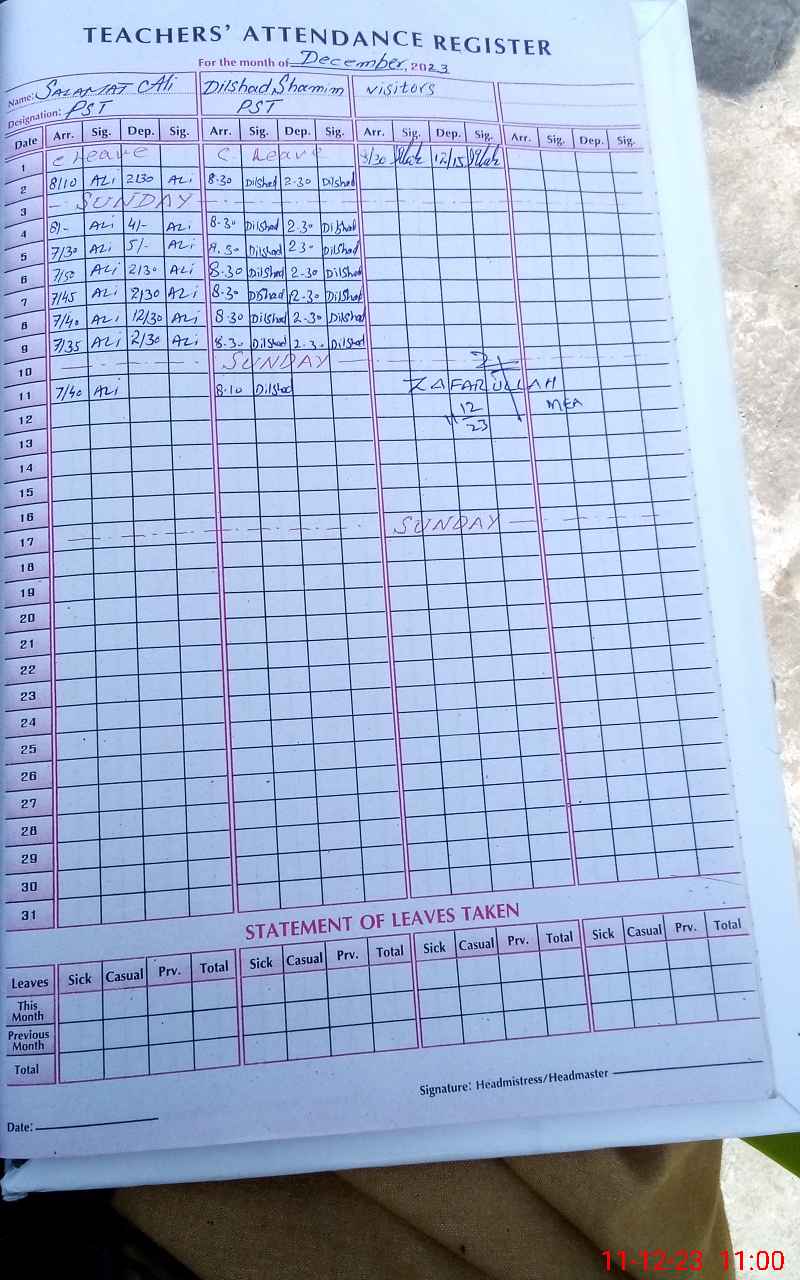 TEACHERS' ATTENDANCE REGISTER
For the month of December, 2023
Name: SALAMAT Ali Dilshad Shamim visitors
Designation: PST PST
Date Arr. Sig. Dep. Sig. Arr. Sig. Dep. Sig. Arr. Sig. Dep. Sig. Arr. Sig. Dep. Sig.
1 C Leave C Leave 12/15
2 8/10 ALi 2130 ALi 8-30 Dilshad 2-30 Dilshad
3 SUNDAY
4 8/- ALi 4/- ALi 8-30 Dilshad 2-30 Dilshad
5 7/30 ALi 5/- ALi 8.30 Dilshad 2 3- Dilshad
6 7/50 ALi 2/30 ALi 8-30 Dilshad 2-30 Dilshad
7 7/45 ALi 2/30 ALi 8-30 Dilshad 2-30 Dilshad
8 7/40 ALi 12/30 ALi 8-30 Dilshad 2-30 Dilshad
9 7/35 ALi 2/30 ALi 8-30 Dilshad 2-30 Dilshad
10 SUNDAY
11 7/40 ALi 8-10 Dilshad ZAFARULLAH
12 11 12 MEA
23
13
14
15
16
17 SUNDAY
18
19
20
21
22
23
24
25
26
27
28
29
30
31
STATEMENT OF LEAVES TAKEN
Leaves Sick Casual Prv. Total Sick Casual Prv. Total Sick Casual Prv. Total Sick Casual Prv. Total
This Month
Previous Month
Total
Signature: Headmistress/Headmaster
Date:
11-12-23 11:00